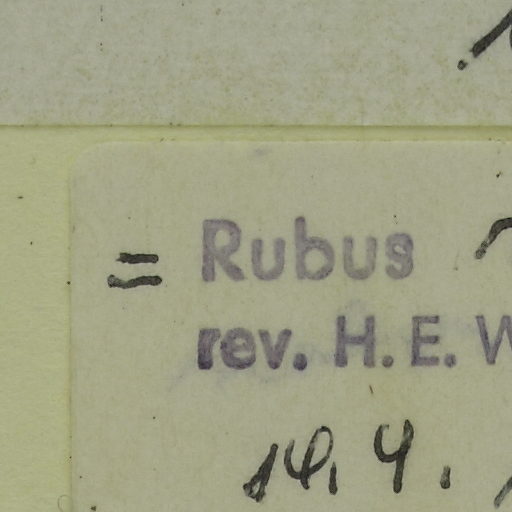 = Rubus
rev. H. E. W
14. 4.